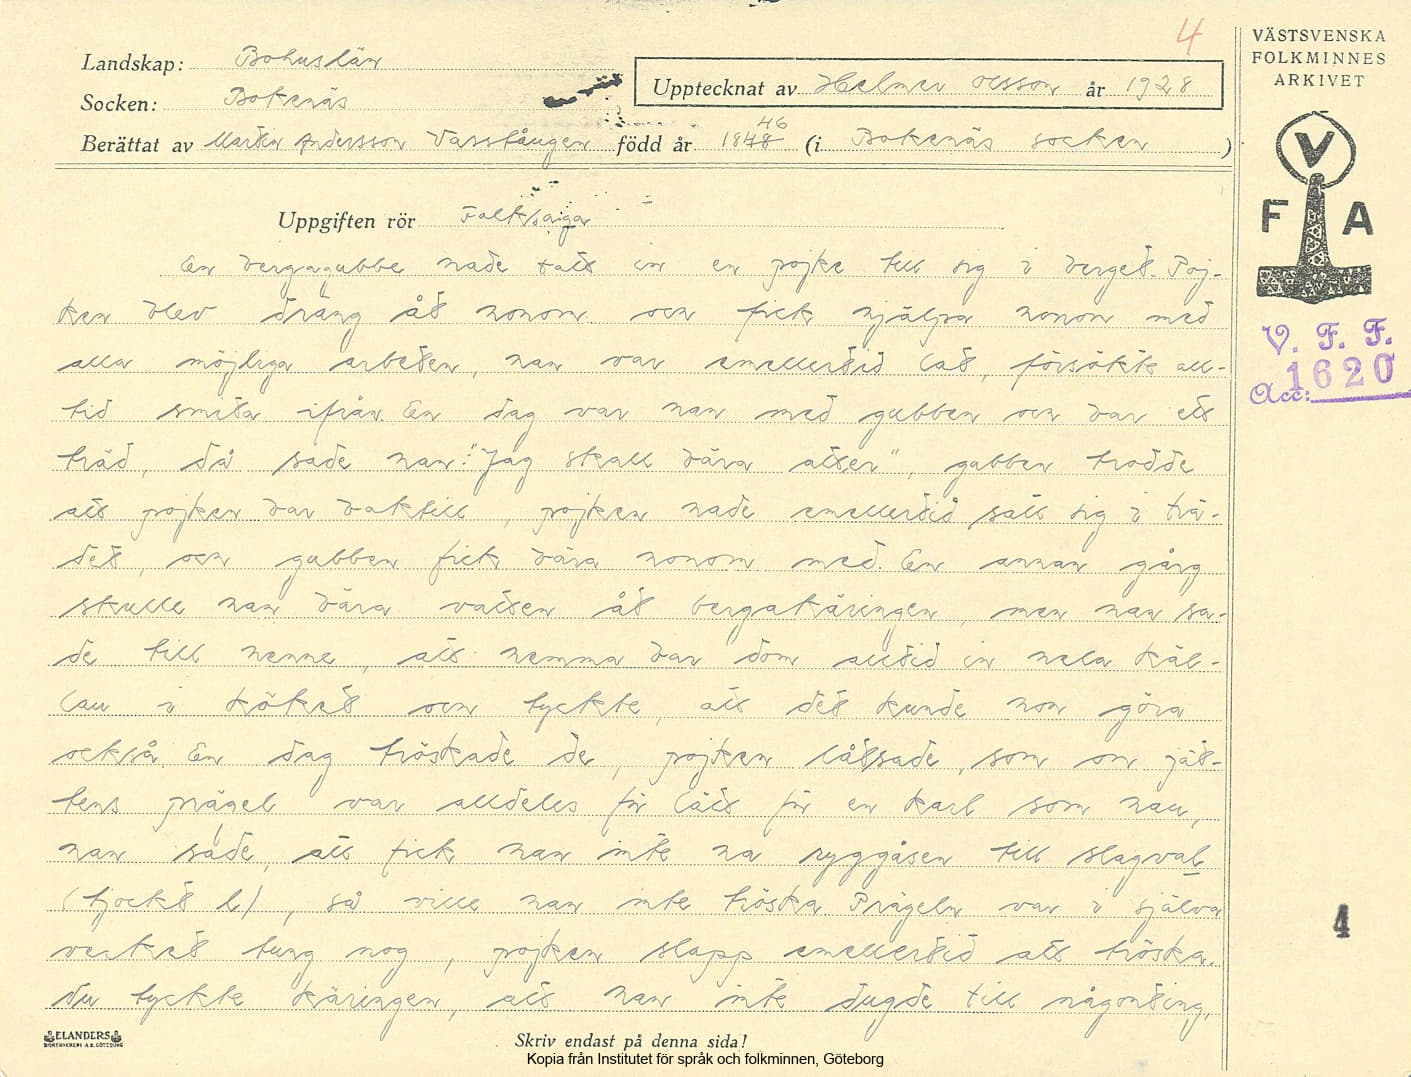 4
VÄSTSVENSKA
FOLKMINNES
ARKIVET
Landskap: Bohuslän
Upptecknat av Helmer Olsson år 1928
Socken: Bokenäs
Berättat av Martin Andersson Vasstången född år 1848 46 (i Bokenäs socken )
V
F A
Uppgiften rör Folksaga
En bergagubbe hade tait in en pojke till sig i berget. Poj-
ken blev dräng åt honom och fick hjälpa honom med
alla möjliga arbeten, han var emellertid lat, försökte all-
tid smita ifrån. En dag var han med gubben och bar ett
träd, då sade han: "Jag skall bära atter", gubben trodde
att pojken bar baktill, pojken hade emellertid satt sig i trä-
det, och gubben fick bära honom med. En annan gång
skulle han bära vatten åt bergakäringen, men han sa-
de till henne, att hemma bar dom alltid in hela käl-
lan i köket och tyckte, att det kunde hon göra
också. En dag tröskade de, pojken låtsade, som om jät-
tens prägel var alldeles för lätt för en karl som han,
han sade, att fick han inte ha ryggåsen till slagval
(tjockt l), så ville han inte tröska. Prägeln var i själva
verket tung nog, pojken slapp emellertid att tröska.
Nu tyckte käringen, att han inte dugde till någonting,
V. F. F.
Acc: 1620
4
ELANDERS
BOKTRYCKERI A.B. GÖTEBORG
Skriv endast på denna sida!
Kopia från Institutet för språk och folkminnen, Göteborg